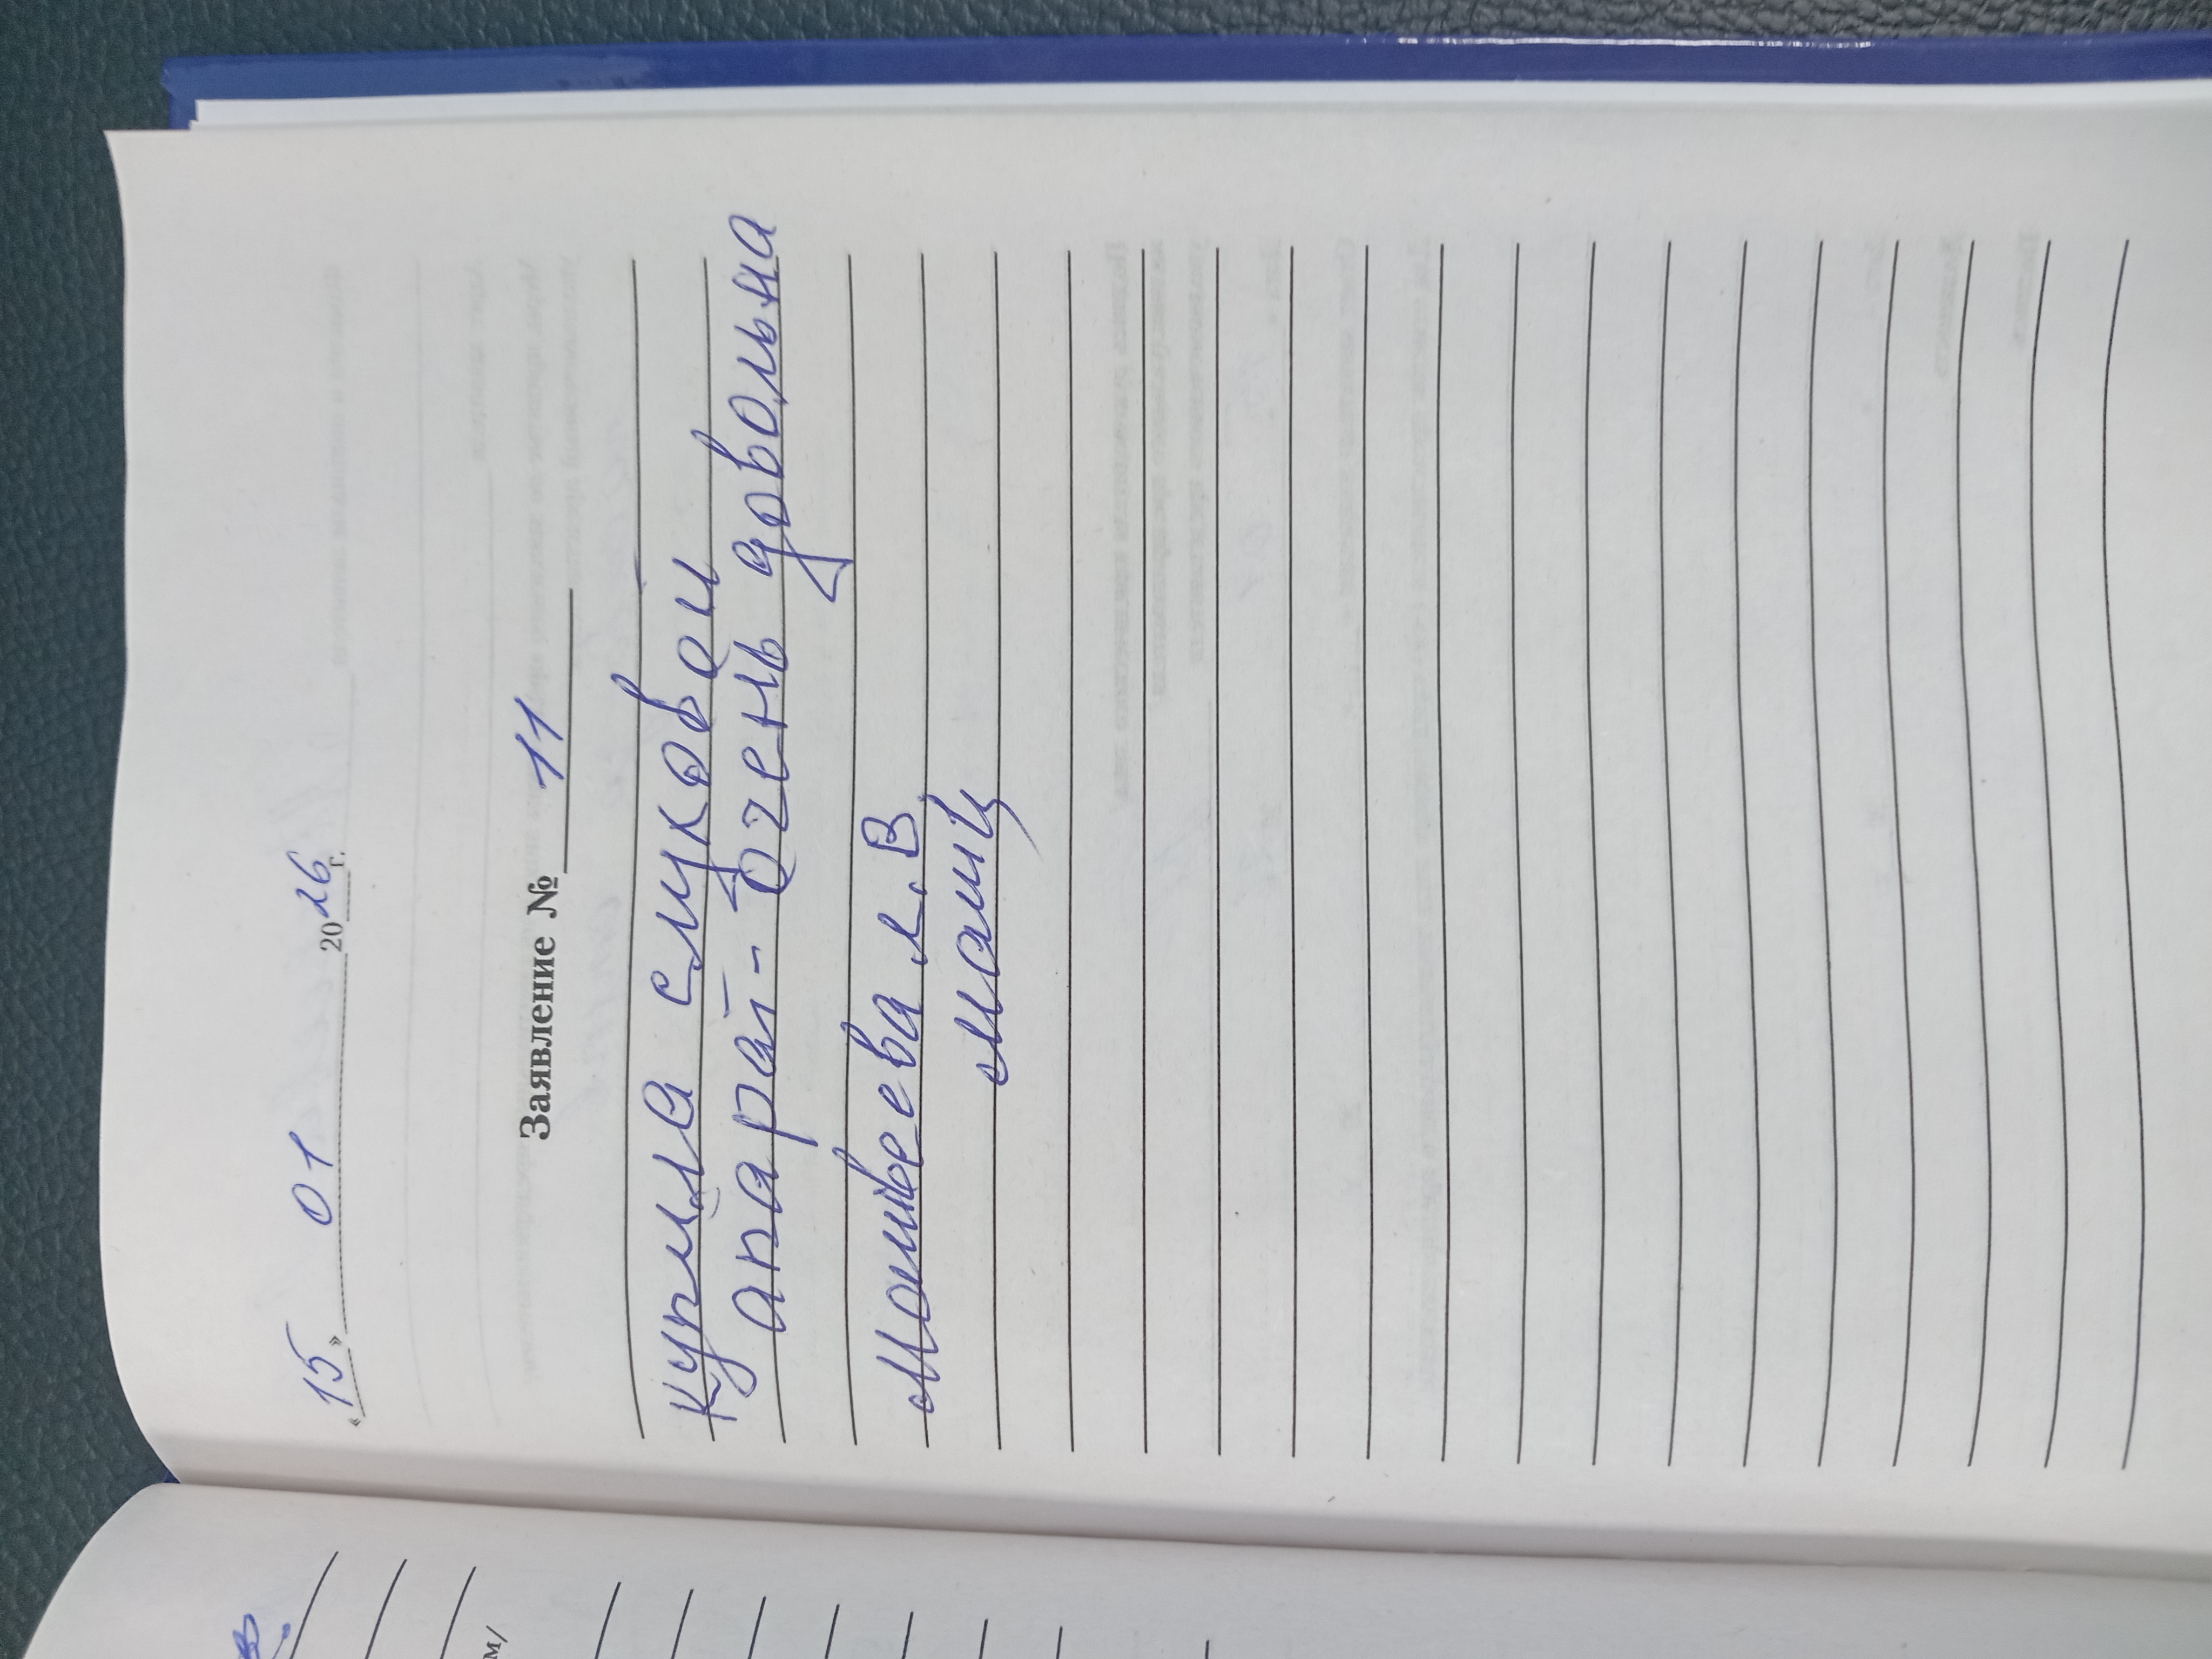 «15» 01 2026 г.
Заявление № 11
Купила слуховой
апарат - очень довольна
Матвеева Л.В